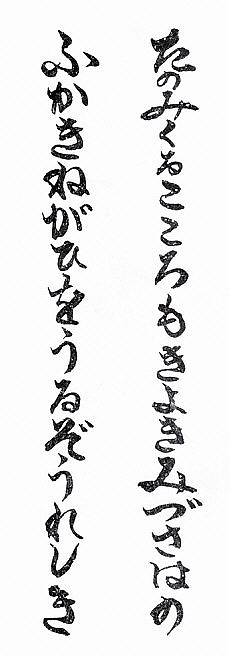 たのみくむこころもきよきみづさはの
ふかきねがひをうるぞうれしき